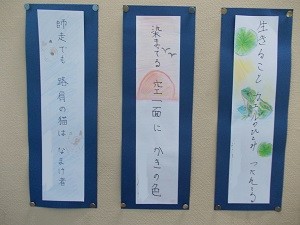 生きること
師走でも 路肩の猫は なまけ者
染まってる 空一面に かきの色